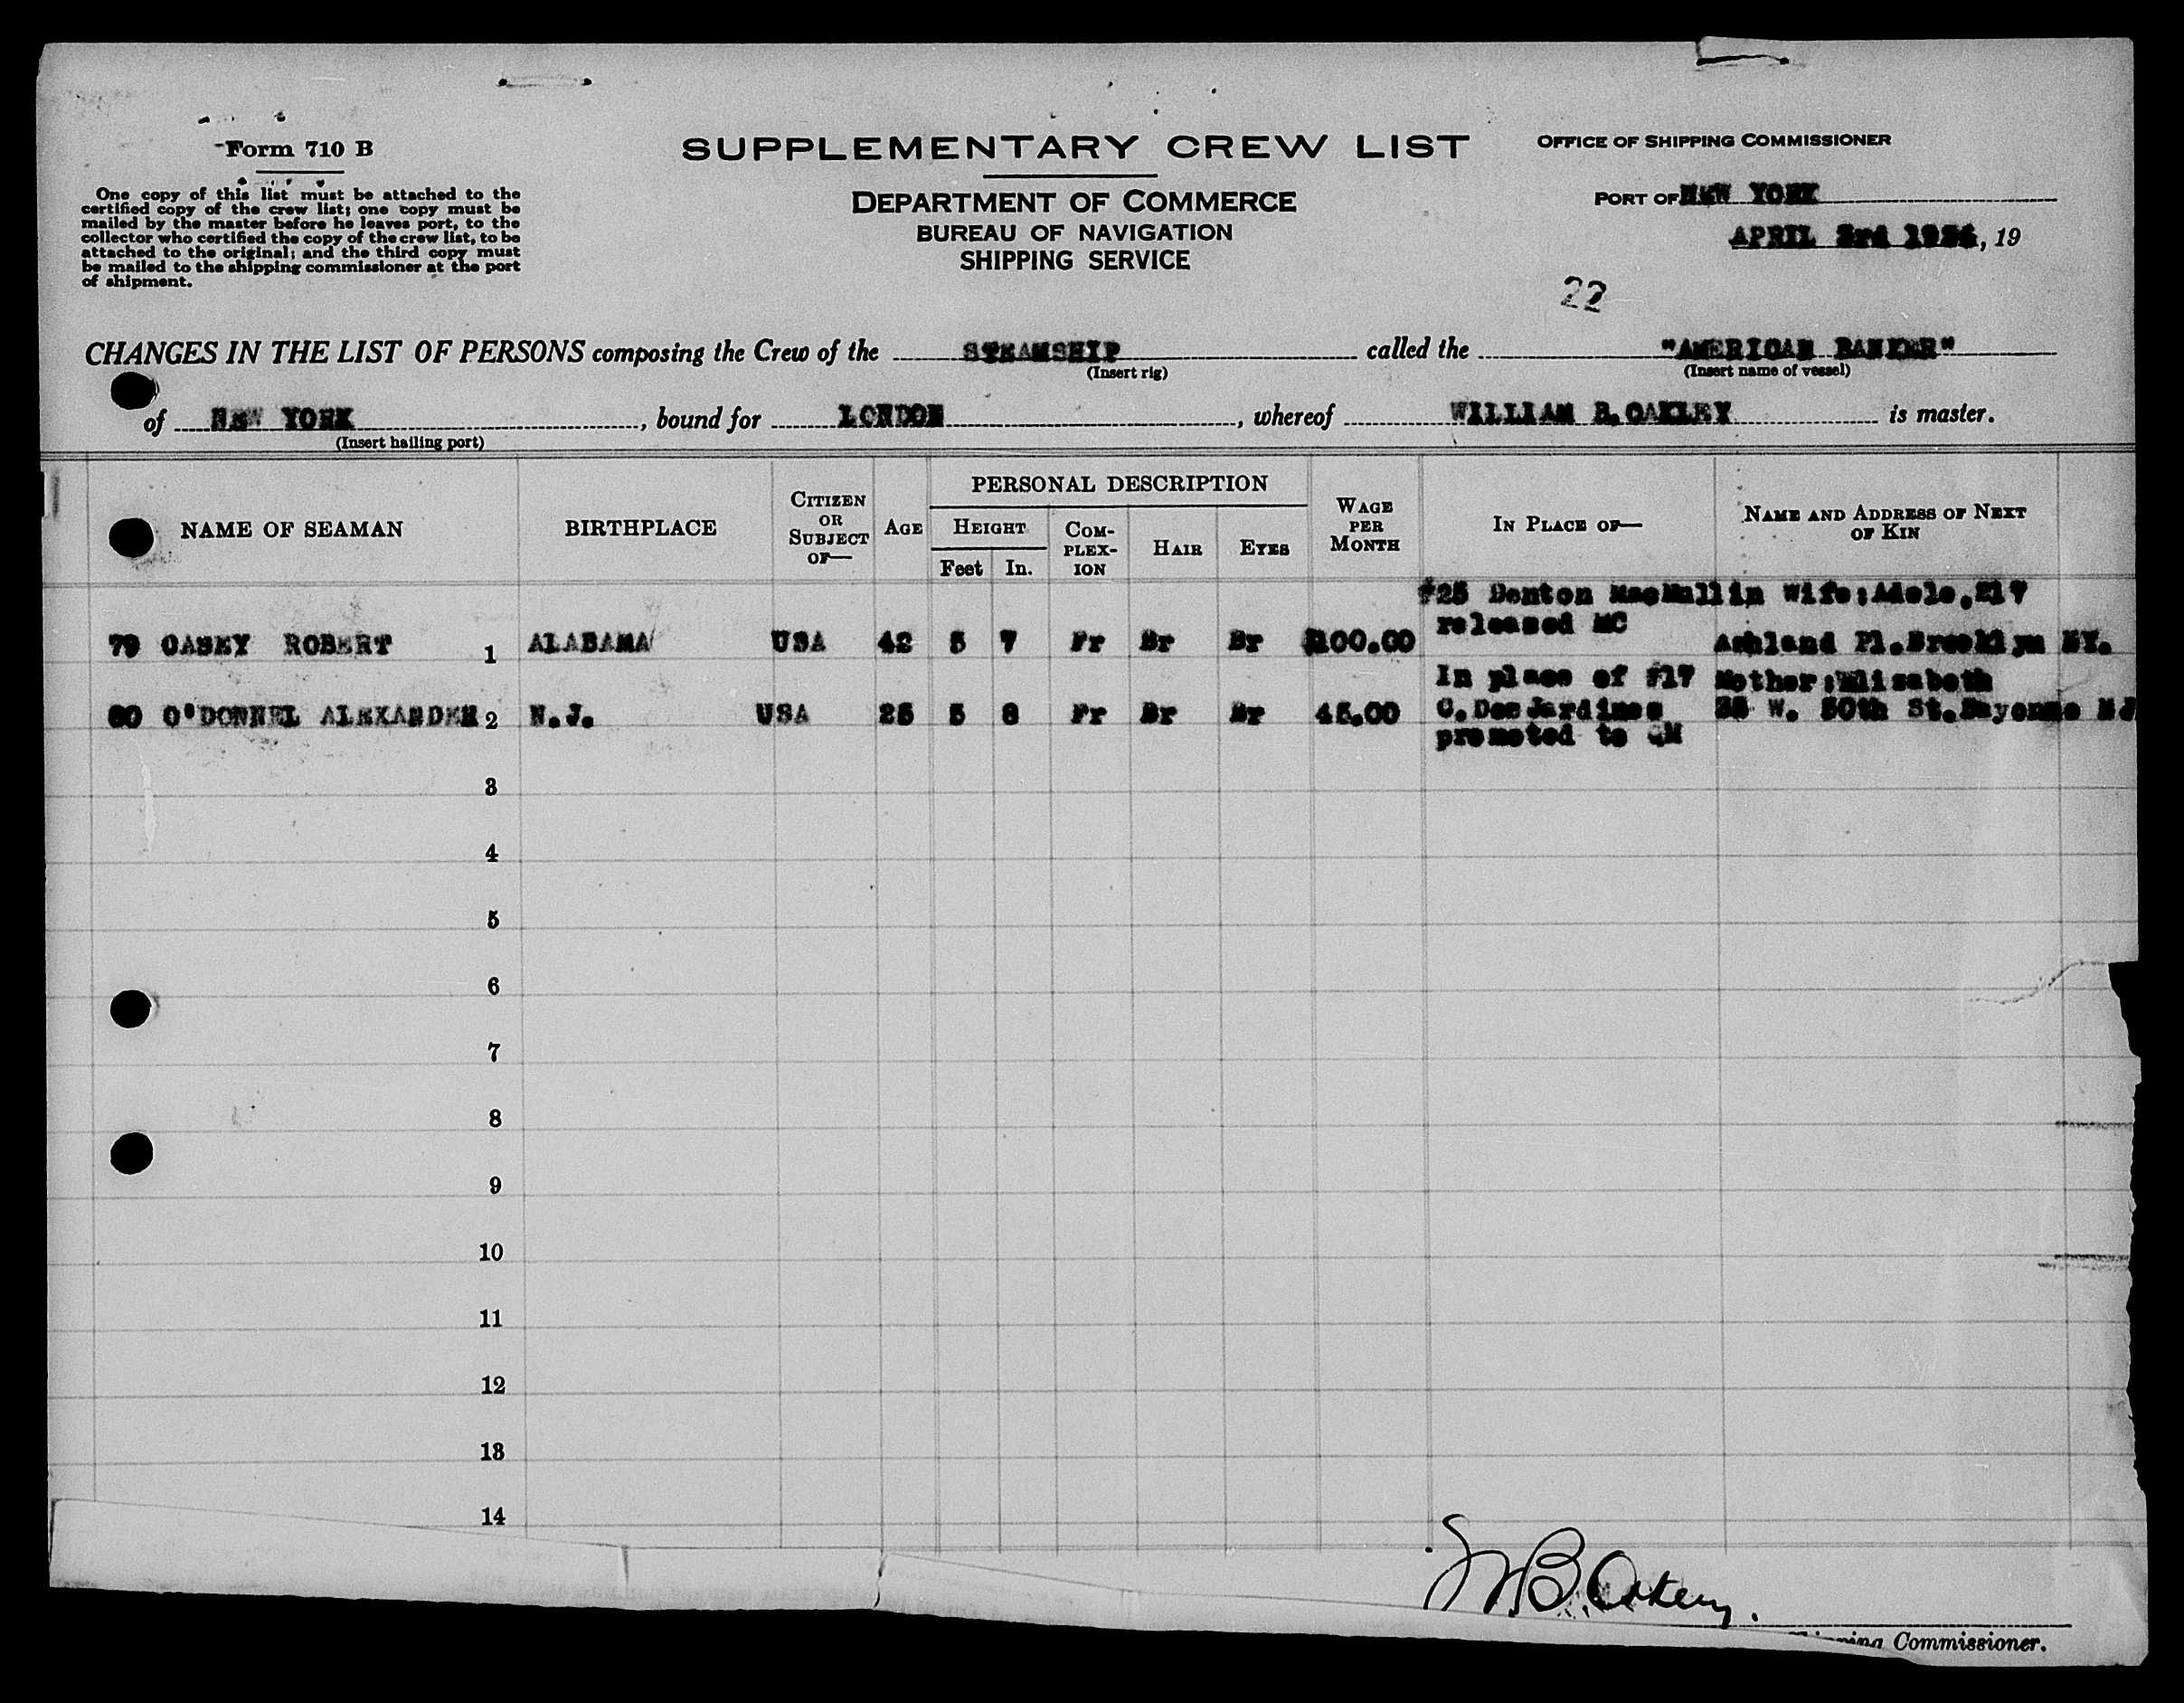 Form 710 B
One copy of this list must be attached to the
certified copy of the crew list; one copy must be
mailed by the master before he leaves port, to the
collector who certified the copy of the crew list, to be
attached to the original; and the third copy must
be mailed to the shipping commissioner at the port
of shipment.
SUPPLEMENTARY CREW LIST
DEPARTMENT OF COMMERCE
BUREAU OF NAVIGATION
SHIPPING SERVICE
OFFICE OF SHIPPING COMMISSIONER
PORT OF NEW YORK
APRIL 3rd, 19
22
CHANGES IN THE LIST OF PERSONS composing the Crew of the STEAMSHIP called the "AMERICAN BANKER"
(Insert rig) (Insert name of vessel)
of NEW YORK, bound for LONDON, whereof WILLIAM B. OAKLEY is master.
(Insert hailing port)
NAME OF SEAMAN BIRTHPLACE CITIZEN OR SUBJECT OF— AGE PERSONAL DESCRIPTION WAGE PER MONTH IN PLACE OF— NAME AND ADDRESS OF NEXT OF KIN
HEIGHT COMPLEXION HAIR EYES
Feet In.
#25 Denton MacMullin Wife:Adele,217
79 CASEY ROBERT 1 ALABAMA USA 42 5 7 Fr Br Br 100.00 released MC Ashland Pl.Brooklyn NY.
In place of #17 Mother:Elizabeth
80 O'DONNEL ALEXANDER 2 N.J. USA 25 5 8 Fr Br Br 45.00 C.DesJardines 35 W. 50th St.Bayonne NJ
promoted to QM
3
4
5
6
7
8
9
10
11
12
13
14
W.B. Oakley.
Commissioner.